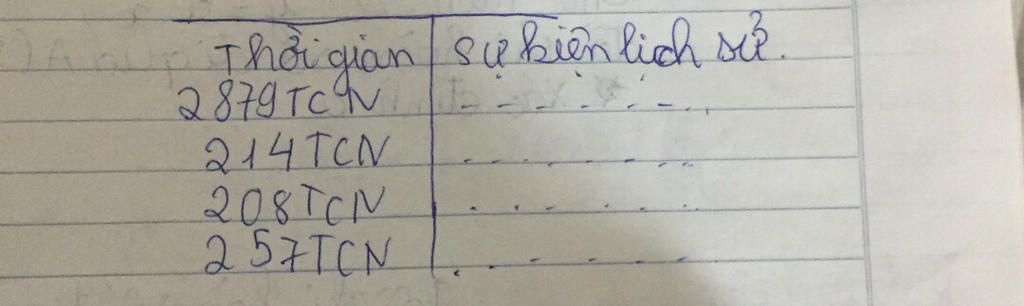 Thời gian sự kiện lịch sử.
2879 TCN - - - - - - - . ,
214 TCN . - . - - - -
208 TCN . . . . . .
257 TCN . - - - - -